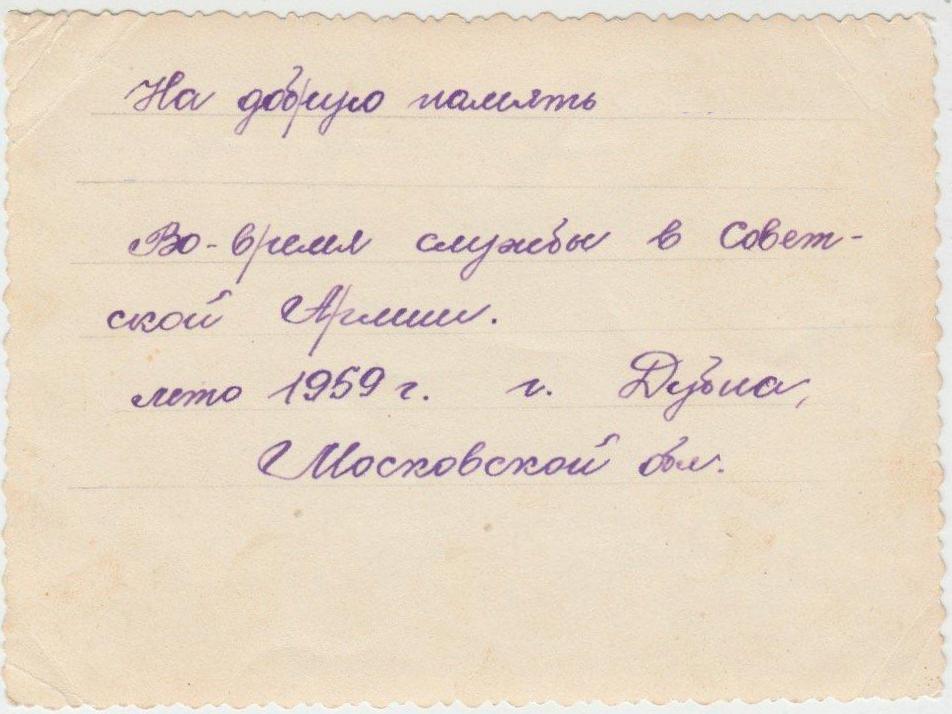 На добрую память
Во-время службы в Совет-
ской Армии.
лето 1959 г. г. Дубна,
Московской обл.